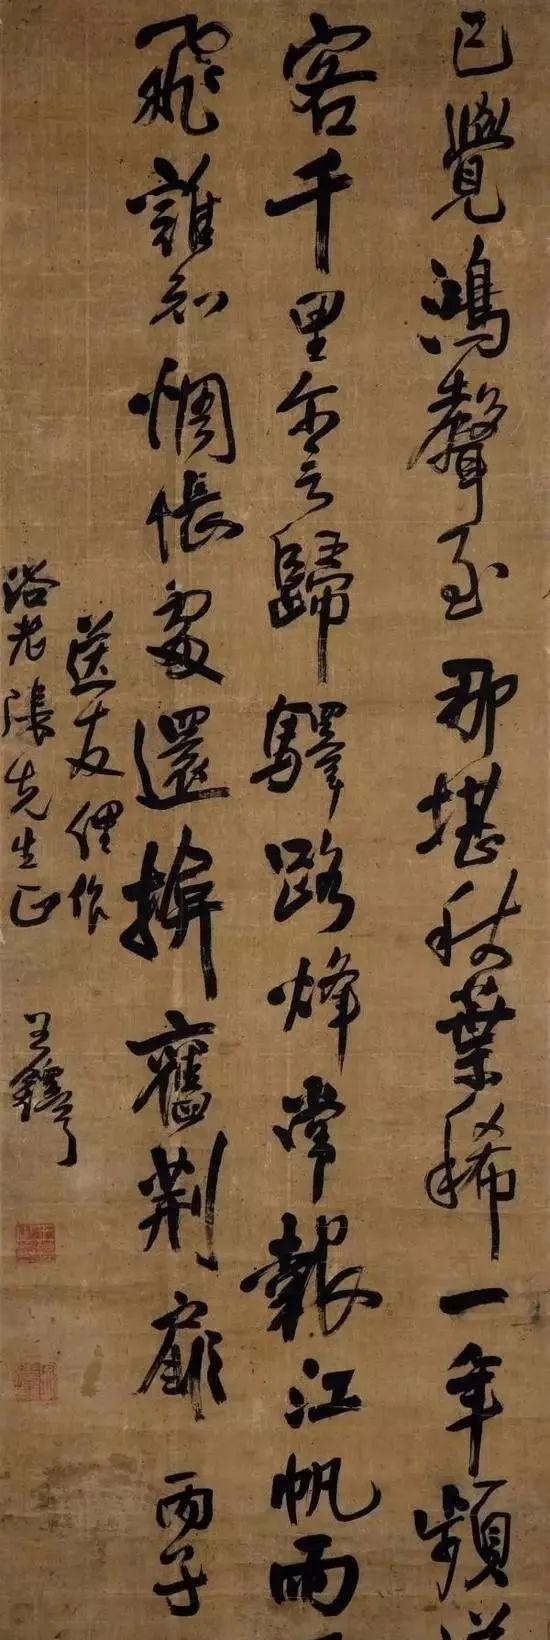 已覺鴻聲至那堪秋葉稀一年頻送
客千里尔言歸驛路烽常報江帆雨
飛誰知惆悵處還揜舊荆扉 丙子
送友俚作
洛老張先生正 王鐸